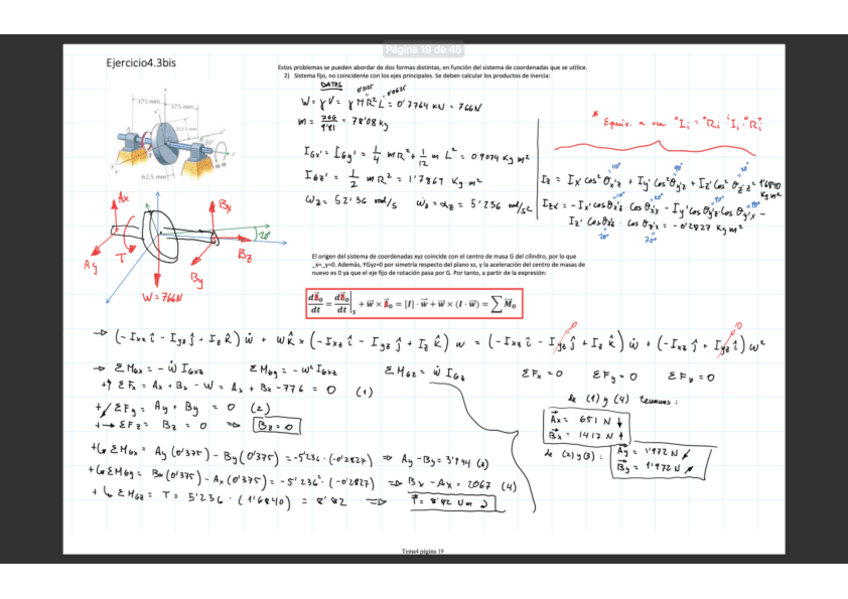 Página 19 de 45
Ejercicio4.3bis
Estos problemas se pueden abordar de dos formas distintas, en función del sistema de coordenadas que se utilice.
2) Sistema fijo, no coincidente con los ejes principales. Se deben calcular los productos de inercia:
DATOS
W = γV = γ π R² L = 0'7764 kN = 766N
m = 766/9'81 = 78'08 kg
I_Gx' = I_Gy' = 1/4 m R² + 1/12 m L² = 0'9074 kg m²
I_Gz' = 1/2 m R² = 1'7867 kg·m²
ω_z = 52'36 rad/s ω̇_z = α_z = 5'236 rad/s²
* Equiv. a usar
I_z = I_x' cos² θ_x'z + I_y' cos² θ_y'z + I_z' cos² θ_z'z = 1'6840 kg m²
I_zx = -I_x' cos θ_x'z · cos θ_x'x - I_y' cos θ_y'z cos θ_y'x -
I_z' cos θ_z'z · cos θ_z'x = -0'2827 kg m²
375 mm
375 mm
62,5 mm
Ax
Bx
20°
T
Bz
Ay
By
W = 766N
El origen del sistema de coordenadas xyz coincide con el centro de masa G del cilindro, por lo que
_x=_y=0. Además, YGyz=0 por simetría respecto del plano xz, y la aceleración del centro de masas de
nuevo es 0 ya que el eje fijo de rotación pasa por G. Por tanto, a partir de la expresión:
→ (-I_xz î - I_yz ĵ + I_z k̂) ω̇ + ω k̂ × (-I_xz î - I_yz ĵ + I_z k̂) ω = (-I_xz î - I_yz ĵ + I_z k̂) ω̇ + (-I_xz ĵ + I_yz î) ω²
→ Σ M_Gx = -ω̇ I_Gxz Σ M_Gy = -ω² I_Gxz Σ M_Gz = ω̇ I_Gz Σ Fx = 0 Σ Fy = 0 Σ Fz = 0
+↑ Σ Fx = Ax + Bx - W = Ax + Bx - 776 = 0 (1)
+↙ Σ Fy = Ay + By = 0 (2)
+→ Σ Fz = Bz = 0 ⇒ Bz = 0
+ Σ M_Gx = Ay (0'375) - By (0'375) = -5'236 · (-0'2827) ⇒ Ay - By = 3'944 (3)
+ Σ M_Gy = Bx (0'375) - Ax (0'375) = -5'236² · (-0'2827) ⇒ Bx - Ax = 2067 (4)
+ Σ M_Gz = T = 5'236 · (1'6840) = 8'82 ⇒ T = 8'82 Nm
de (1) y (4) tenemos:
Ax = 651 N ↓
Bx = 1417 N ↑
de (2) y (3):
Ay = 1'972 N
By = 1'972 N
Tema4 página 19